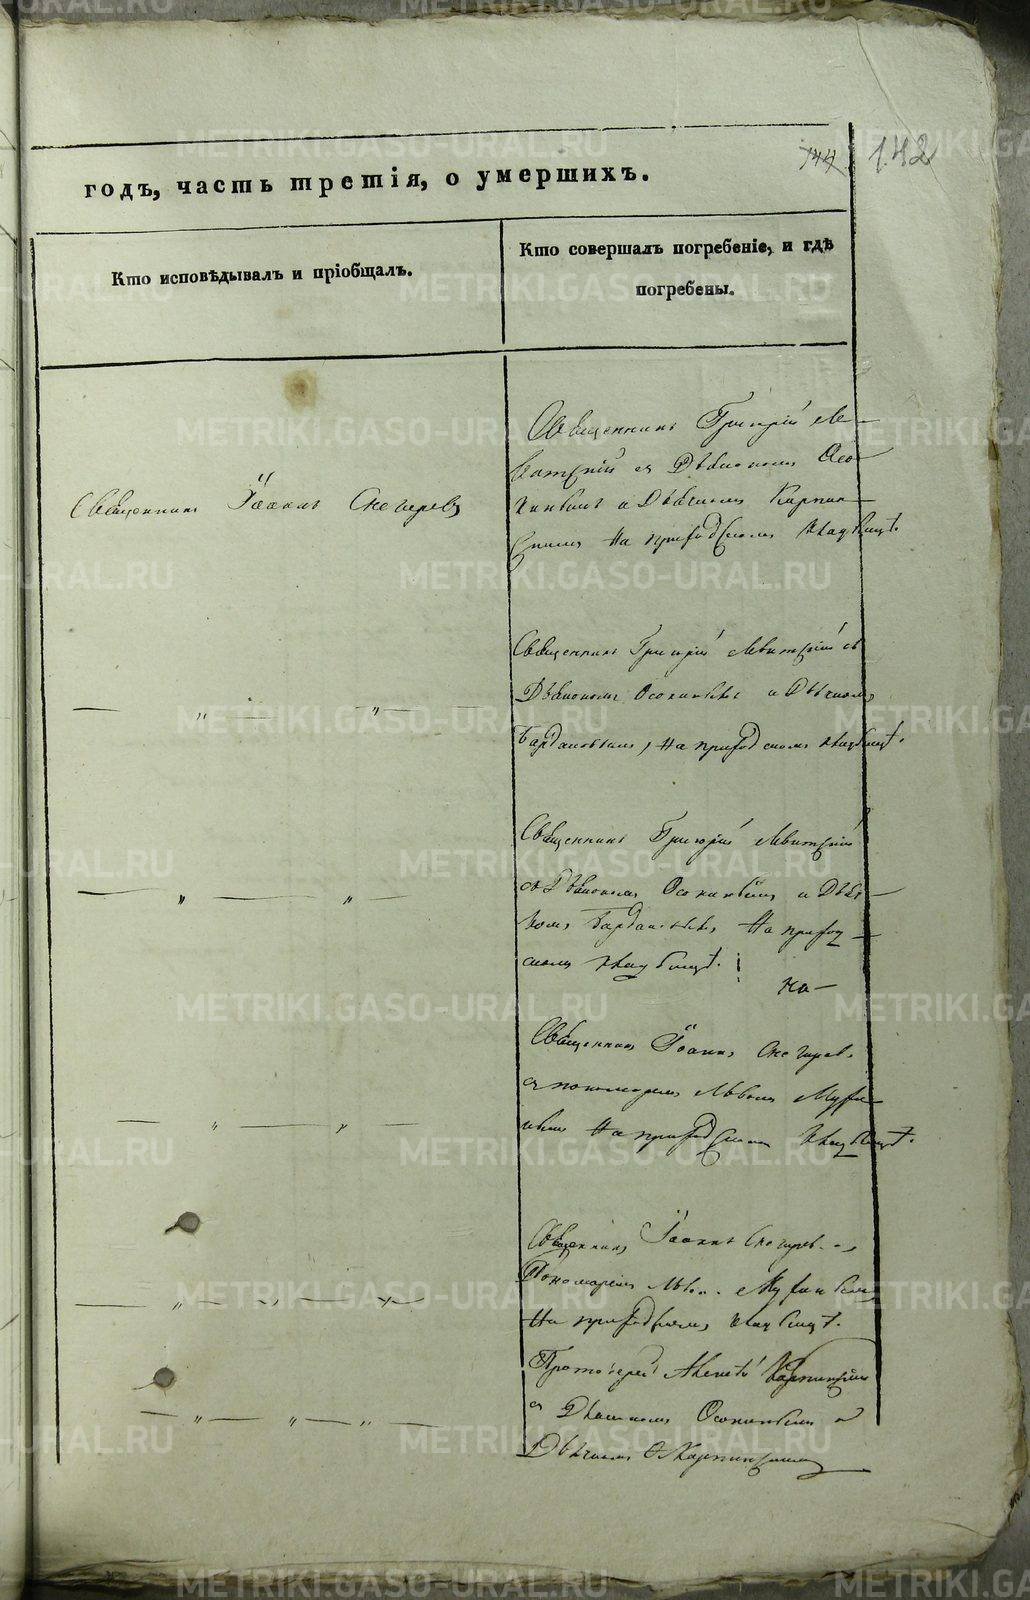 144 142
годъ, часть третія, о умершихъ.
Кто исповѣдывалъ и пріобщалъ.
Кто совершалъ погребеніе, и гдѣ
погребены.
Священникъ Іоаннъ Снегиревъ
Священникъ Григорій Ле-
витскій съ Діакономъ Осо-
кинымъ и Дьячкомъ Карпин-
скимъ на приходскомъ кладбищѣ.
Священникъ Григорій Левитскій съ
Діакономъ Осокинымъ и Дьячкомъ
на приходскомъ кладбищѣ.
Священникъ Григорій Левитскій
съ Діакономъ Осокинымъ и Дьяч-
комъ на приход-
скомъ кладбищѣ.
на-
Священникъ Іоаннъ Снегиревъ
съ пономаремъ
на приходскомъ кладбищѣ.
Священникъ Іоаннъ Снегиревъ
Пономаремъ
на приходскомъ кладбищѣ.
Протоіерей Алексѣй Карпинскій
съ Діакономъ Осокинымъ и
Дьячкомъ Карпинскимъ
METRIKI.GASO-URAL.RU